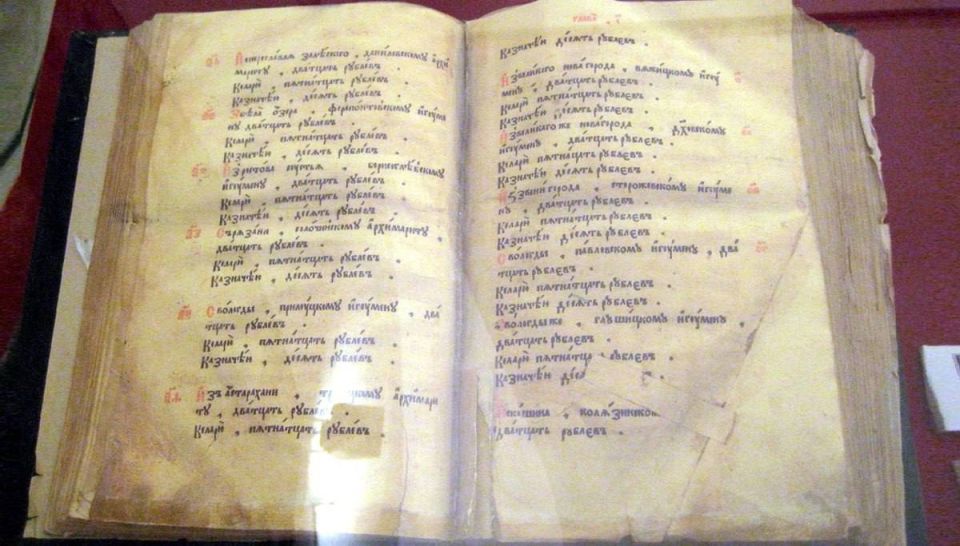 Переславля залѣского, даниловскому а҆рхи
мариту, два́тцать рубле́въ.
Келарю̀ пятна́тцать рубле́въ.
Казначе́ю, де́сять рубле́въ.
Збѣла о҆зера, ферапонтовскому и҆гѹме
ну два́тцать рубле́въ.
Келарю̀, пятна́тцать рубле́въ.
Казначе́ю, де́сять рубле́въ.
борисоглѣ́бскому
и҆гѹ́мену, два́тцать рубле́въ.
Келарю̀ пятна́тцать рубле́въ.
Казначе́ю, де́сять рубле́въ.
Съряза́на, солочи́нскому а҆рхимариту,
два́тцать рубле́въ.
Келарю̀, пятна́тцать рубле́въ.
Казначе́ю, де́сять рубле́въ.
Сво́логды, прилуцкому и҆гѹ́мену, два́
тцать рубле́въ.
Келарю̀, пятна́тцать рубле́въ.
Казначе́ю, де́сять рубле́въ.
И҆зъ а҆старахани, а҆рхимари
ту, два́тцать рубле́въ.
Келарю̀, пятна́тцать рубле́въ.
глава̀
Казначе́ю де́сять рубле́въ.
Извели́кого нова́города, вяжицкому и҆гѹ́
мену, два́тцать рубле́въ.
Келарю̀ пятна́тцать рубле́въ.
Казначе́ю де́сять рубле́въ.
Извели́кого же нова́города, дх҃овскому
и҆гѹ́мену, два́тцать рубле́въ.
Келарю̀ пятна́тцать рубле́въ.
Казначе́ю де́сять рубле́въ.
И҆ззвени́города, сторожевскому и҆гѹ́ме
ну, два́тцать рубле́въ.
Келарю̀ пятна́тцать рубле́въ.
Казначе́ю де́сять рубле́въ.
Сво́логды, павловскому и҆гѹ́мену, два́
тцать рубле́въ.
Келарю̀ пятна́тцать рубле́въ.
Казначе́ю де́сять рубле́въ.
Сво́логды же, глушицкому и҆гѹ́мену,
два́тцать рубле́въ.
Келарю̀ пятна́тца рубле́въ.
Казначе́ю
Иска́шина, колязинско
два́тцать рубле́въ.